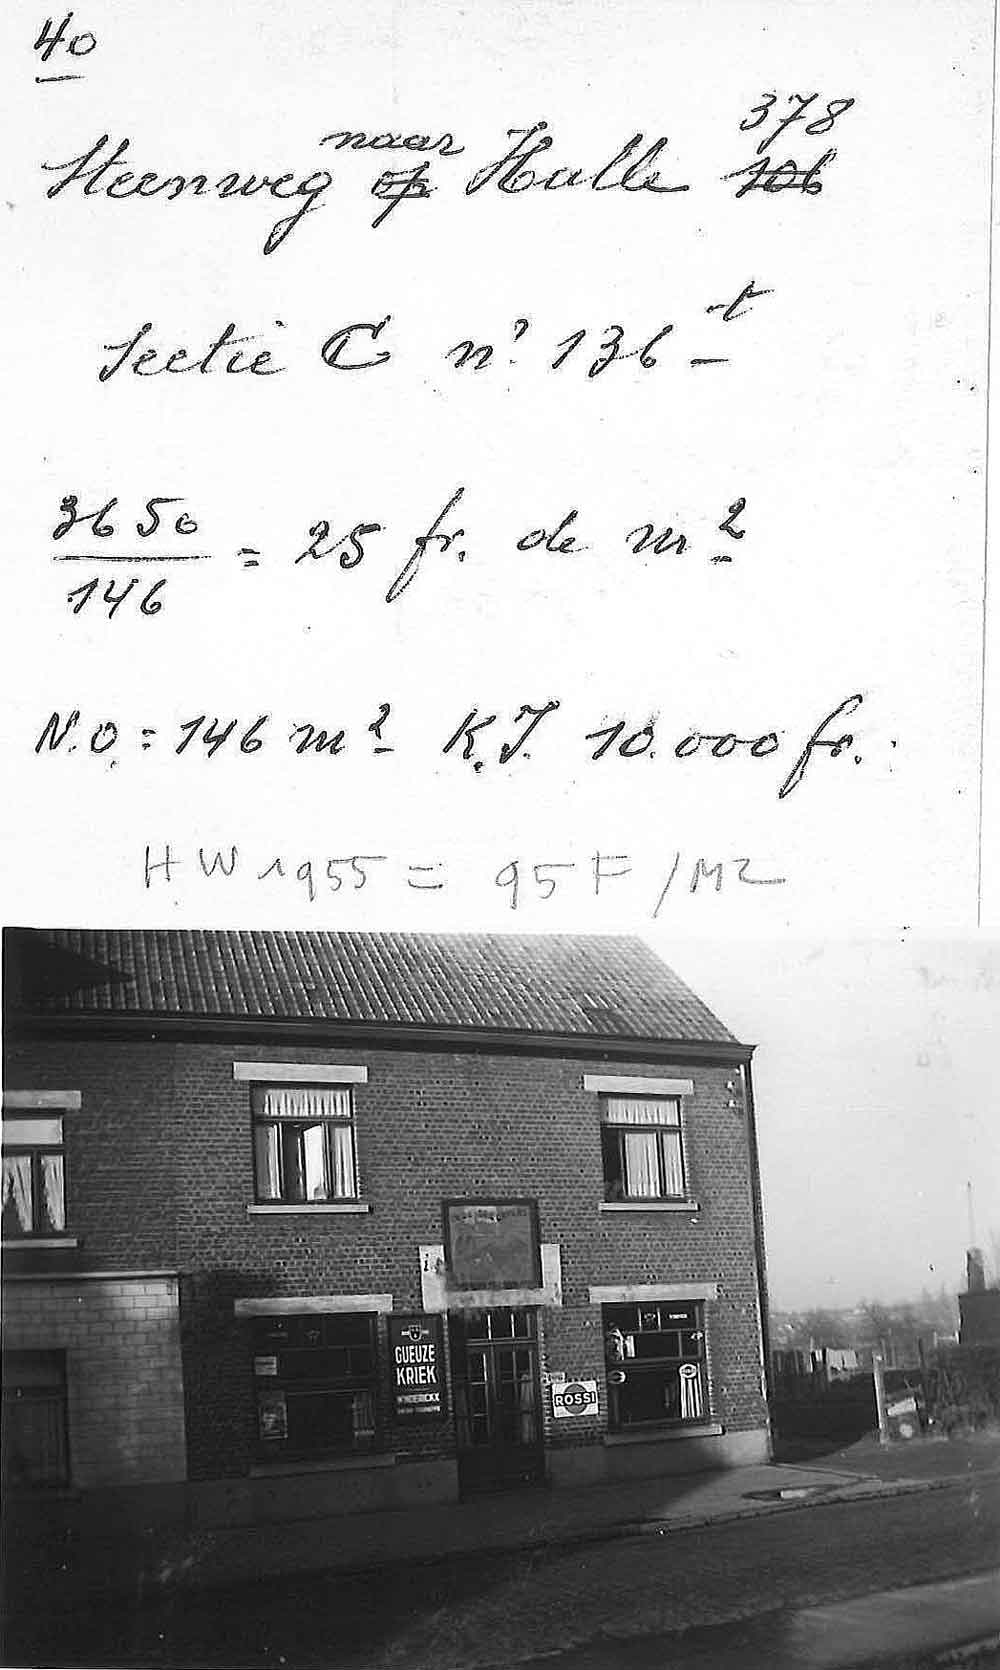 40
naar 378
Steenweg op Halle 106
Sectie C n° 136 t
3650
146
= 25 fr. de m2
N.O. = 146 m2 K.I. 10.000 fr.
HW 1955 = 95 F /M2
GUEUZE
KRIEK
ROSSI